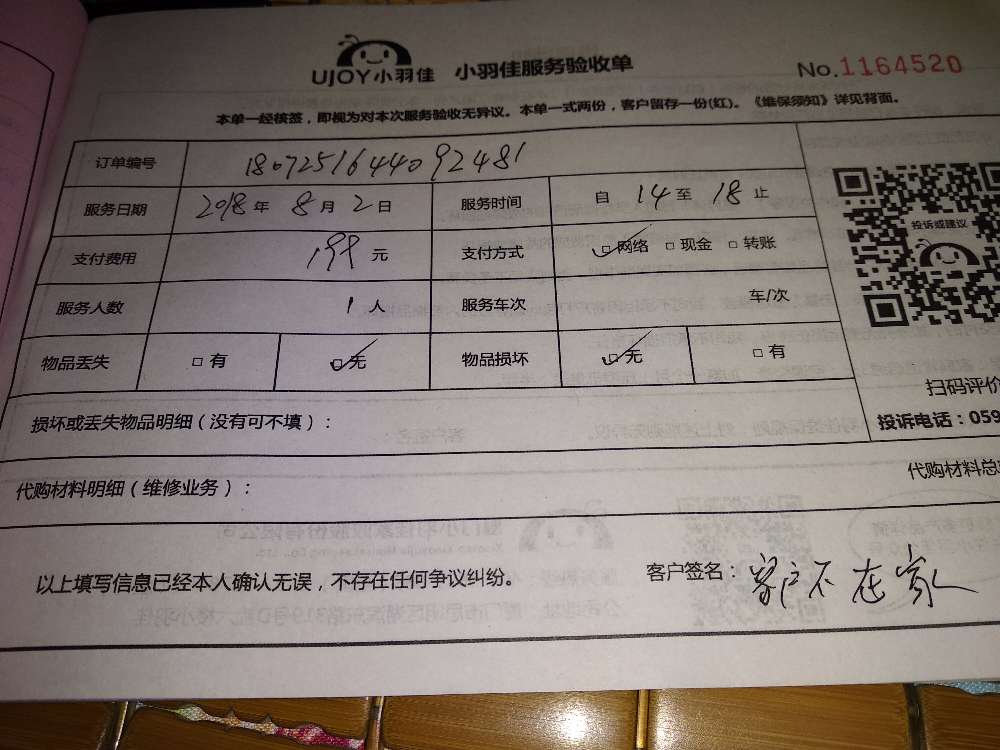 UJOY小羽佳 小羽佳服务验收单 No.1164520
本单一经核签，即视为对本次服务验收无异议。本单一式两份，客户留存一份(红)。《维保须知》详见背面。
订单编号 18072516444092481
服务日期 2018年 8月2日 服务时间 自 14 至 18 止
支付费用 199 元 支付方式 ☑网络 □现金 □转账
服务人数 1 人 服务车次 车/次
物品丢失 □有 ☑无 物品损坏 ☑无 □有
投诉或建议
扫码评价
投诉电话：059
损坏或丢失物品明细（没有可不填）：
代购材料明细（维修业务）： 代购材料总
以上填写信息已经本人确认无误，不存在任何争议纠纷。 客户签名：客户不在家